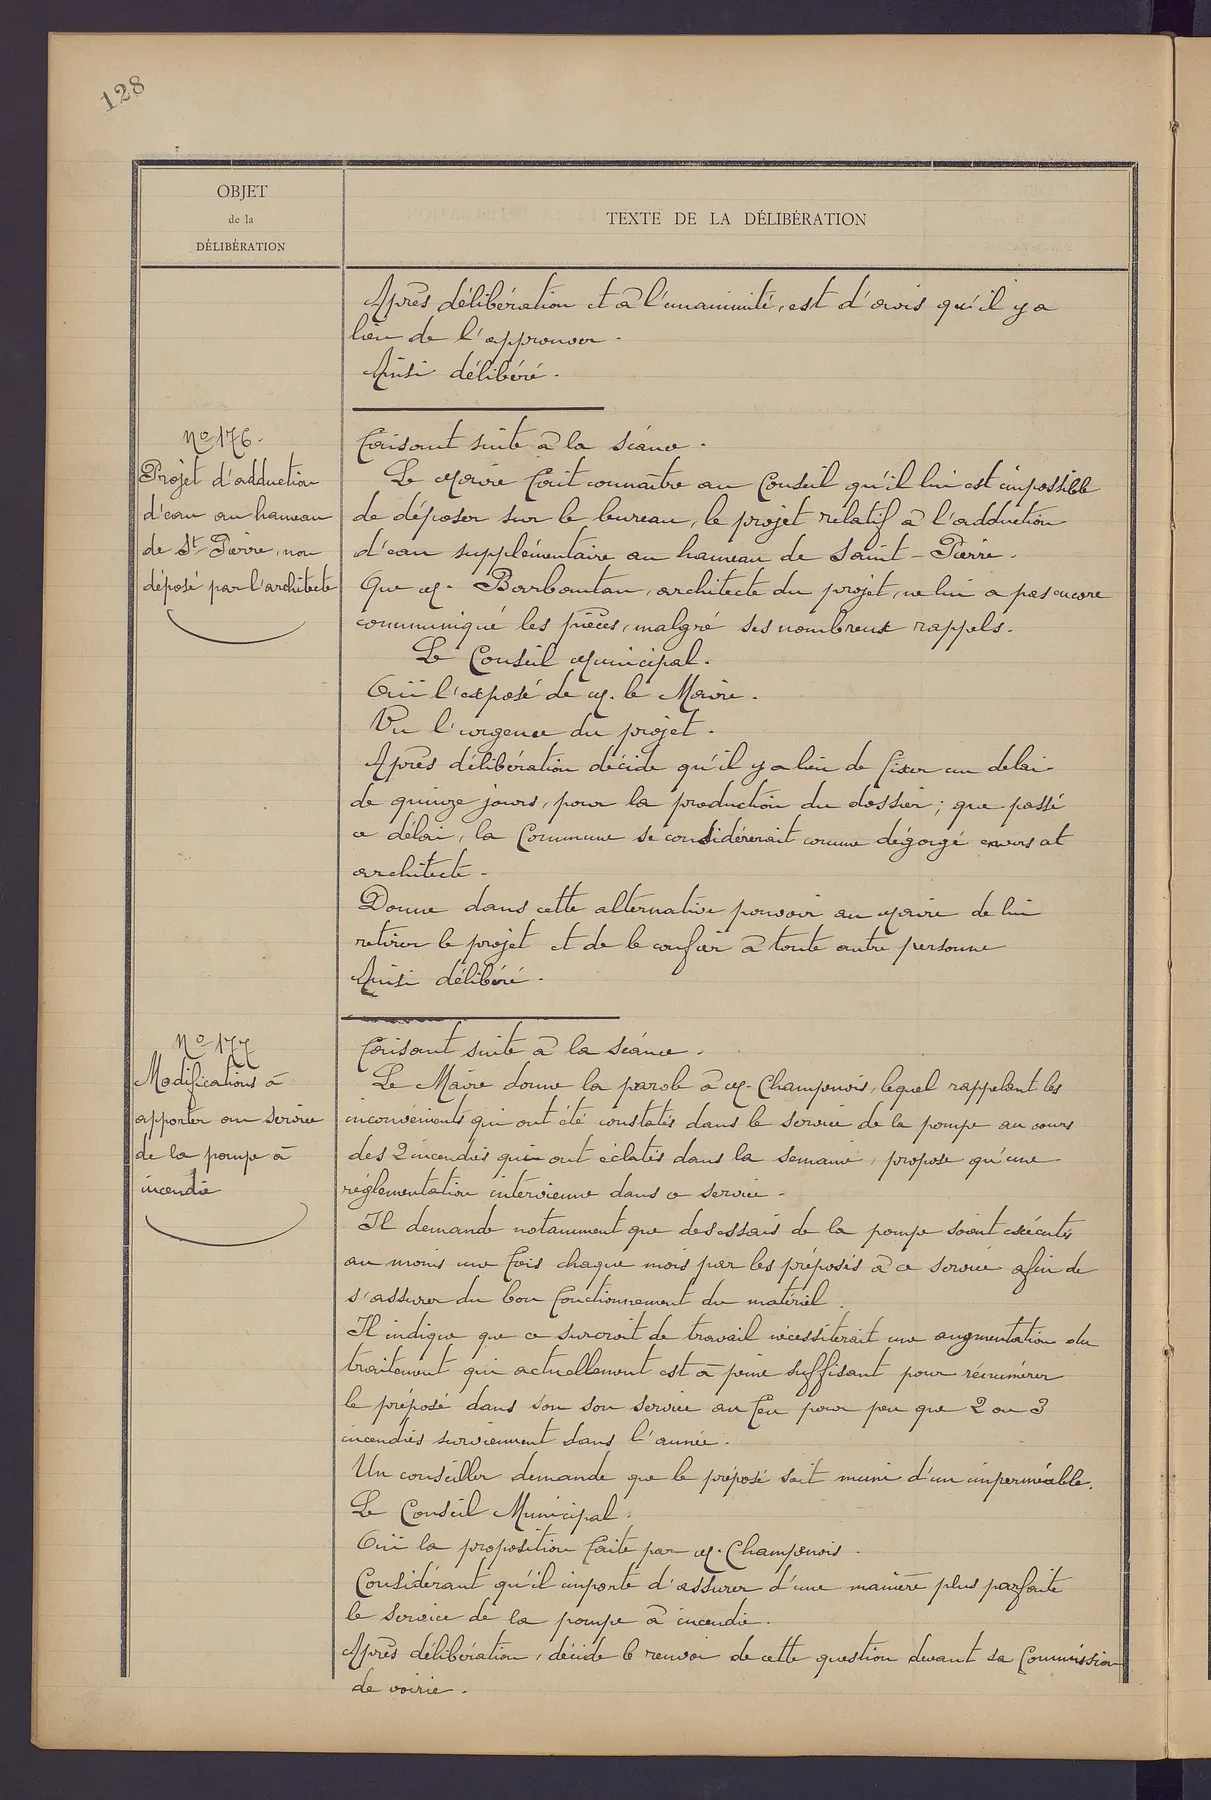 128
OBJET
de la
DÉLIBÉRATION
TEXTE DE LA DÉLIBÉRATION
Après délibération et à l'unanimité, est d'avis qu'il y a
lieu de l'approuver.
Ainsi délibéré.
No 176.
Projet d'adduction
d'eau au hameau
de St Pierre, non
déposé par l'architecte
Faisant suite à la séance.
Le Maire fait connaître au Conseil qu'il lui est impossible
de déposer sur le bureau, le projet relatif à l'adduction
d'eau supplémentaire au hameau de Saint-Pierre.
Que M. Barboutan, architecte du projet, ne lui a pas encore
communiqué les pièces, malgré ses nombreux rappels.
Le Conseil Municipal.
Ouï l'exposé de M. le Maire.
Vu l'urgence du projet.
Après délibération décide qu'il y a lieu de fixer un délai
de quinze jours, pour la production du dossier; que passé
ce délai, la Commune se considérerait comme dégagé envers cet
architecte.
Donne dans cette alternative pouvoir au Maire de lui
retirer le projet et de le confier à toute autre personne
Ainsi délibéré.
No 177
Modifications à
apporter au service
de la pompe à
incendie
Faisant suite à la séance.
Le Maire donne la parole à M. Champenois, lequel rappelant les
inconvénients qui ont été constatés dans le service de la pompe au cours
des 2 incendies qui ont éclatés dans la semaine, propose qu'une
réglementation intervienne dans ce service.
Il demande notamment que des essais de la pompe soient exécutés
au moins une fois chaque mois par les préposés à ce service afin de
s'assurer du bon fonctionnement du matériel.
Il indique que ce surcroit de travail nécessiterait une augmentation du
traitement qui actuellement est à peine suffisant pour rémunérer
le préposé dans son son service au feu pour peu que 2 ou 3
incendies surviennent dans l'année.
Un conseiller demande que le préposé soit muni d'un imperméable.
Le Conseil Municipal.
Ouï la proposition faite par M. Champenois.
Considérant qu'il importe d'assurer d'une manière plus parfaite
le service de la pompe à incendie.
Après délibération, décide le renvoi de cette question devant sa Commission
de voirie.